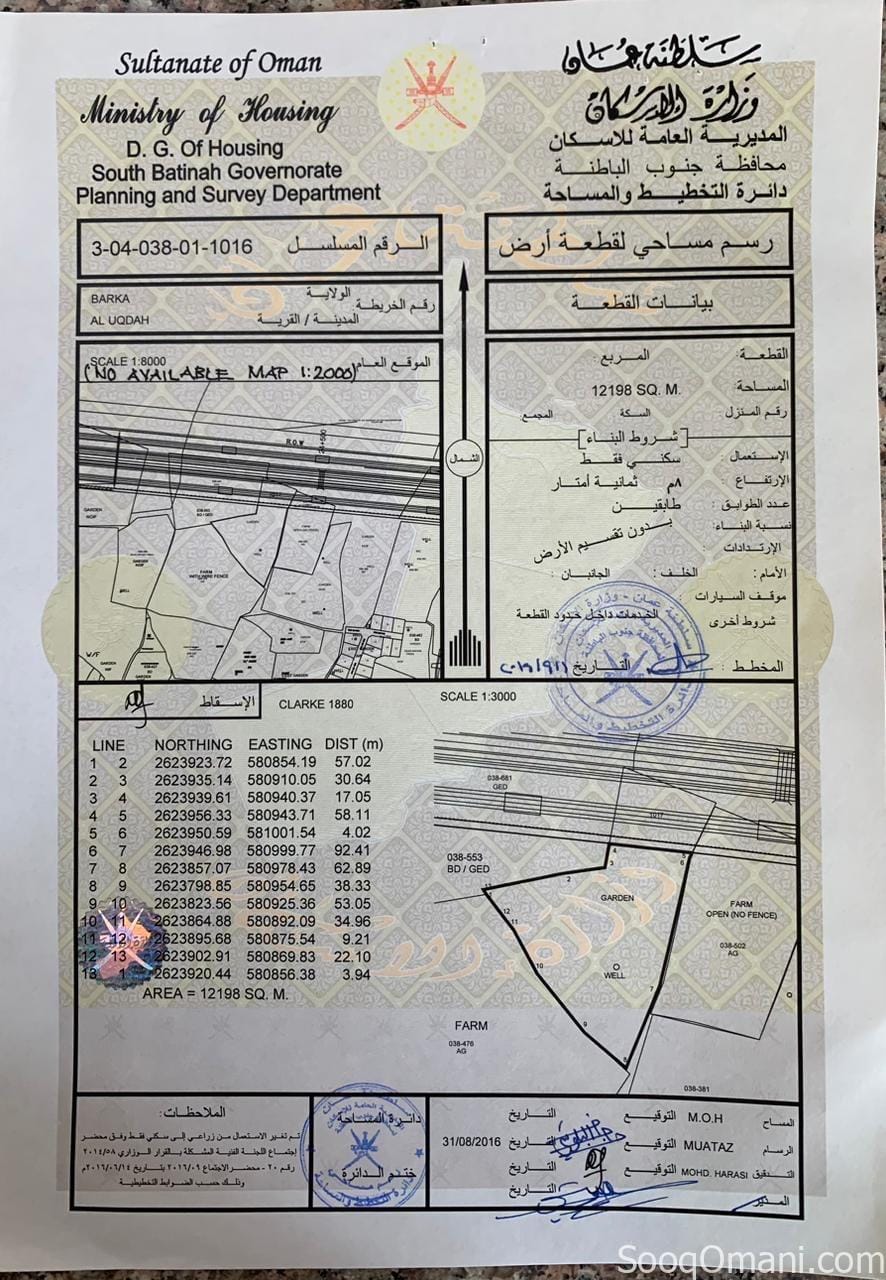 Sultanate of Oman
Ministry of Housing
D. G. Of Housing
South Batinah Governorate
Planning and Survey Department
سلطنة عمان
وزارة الإسكان
المديرية العامة للاسكان
محافظة جنوب الباطنة
دائرة التخطيط والمساحة
3-04-038-01-1016 الرقم المسلسل
رسم مساحي لقطعة أرض
BARKA الولاية
رقم الخريطة:
AL UQDAH المدينة / القرية
بيانات القطعة
SCALE 1:8000 الموقع العام
(NO AVAILABLE MAP 1:2000)
R.O.W
GARDEN
FARM
WITH WIRE FENCE
WELL
W/F
الشمال
القطعة: المربع:
المساحة: 12198 SQ. M.
رقم المنزل: السكة المجمع:
[شروط البناء]
الإستعمال: سكني فقط
الإرتفاع: ٨م ثمانية أمتار
عدد الطوابق: طابقين
نسبة البناء:
بدون تقسيم الأرض
الإرتدادات:
الأمام: الخلف: الجانبان:
موقف السيارات:
شروط أخرى الخدمات داخل حدود القطعة
المخطط: التاريخ
الإسقاط CLARKE 1880 SCALE 1:3000
LINE NORTHING EASTING DIST (m)
1 2 2623923.72 580854.19 57.02
2 3 2623935.14 580910.05 30.64
3 4 2623939.61 580940.37 17.05
4 5 2623956.33 580943.71 58.11
5 6 2623950.59 581001.54 4.02
6 7 2623946.98 580999.77 92.41
7 8 2623857.07 580978.43 62.89
8 9 2623798.85 580954.65 38.33
9 10 2623823.56 580925.36 53.05
10 11 2623864.88 580892.09 34.96
11 12 2623895.68 580875.54 9.21
12 13 2623902.91 580869.83 22.10
13 1 2623920.44 580856.38 3.94
AREA = 12198 SQ. M.
038-681
GED
1017
038-553
BD / GED
GARDEN
WELL
FARM
OPEN (NO FENCE)
038-502
AG
FARM
038-476
AG
038-381
الملاحظات:
تم تغير الاستعمال من زراعي إلى سكني فقط وفق محضر
إجتماع اللجنة الفنية المشكلة بالقرار الوزاري ٢٠١٤/٥٨
رقم ٢٠ - محضر الإجتماع ٢٠١٦/٠٩ بتاريخ ٢٠١٦/٠٦/١٤م
وذلك حسب الضوابط التخطيطية
دائرة المساحة
ختم الدائرة
المساح M.O.H التوقيع التاريخ
الرسام MUATAZ التوقيع التاريخ 31/08/2016
التدقيق MOHD. HARASI التوقيع التاريخ
المدير التاريخ
SooqOmani.com